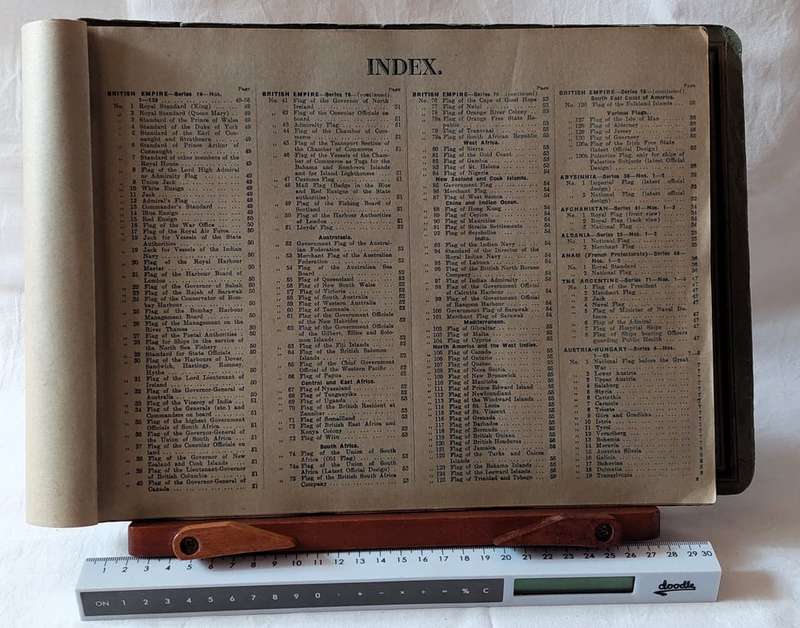 INDEX.
Page
BRITISH EMPIRE—Series 76—Nos.
1—133 49-56
No. 1 Royal Standard (King) 49
2 Royal Standard (Queen Mary) 49
3 Standard of the Prince of Wales 49
4 Standard of the Duke of York 49
5 Standard of the Earl of Connaught
and Strathearn
6 Standard of Prince Arthur of
Connaught
7 Standard of other members of the
Royal House
8 Flag of the Lord High Admiral
or Admiralty Flag
9 Union Jack
10 White Ensign
11 Jack
12 Admiral's Flag
13 Commander's Standard
14 Blue Ensign
15 Red Ensign
16 Flag of the War Office
17 Flag of the Royal Air Force
18 Jack for Vessels of the State
Authorities
19 Jack for Vessels of the Indian
Navy
20 Flag of the Royal Harbour
Master
21 Flag of the Harbour Board of
London
22 Flag of the Governor of Sabah
23 Flag of the Rajah of Sarawak
24 Flag of the Conservator of Bombay
Harbour
25 Flag of the Bombay Harbour
Management Board
26 Flag of the Management on the
River Thames
27 Flag of the Postal Authorities
28 Flag for Ships in the service of
the North Sea Fishery
29 Standard for State Officials
30 Flag of the Harbours of Dover,
Sandwich, Hastings, Romney,
Hythe
31 Flag of the Lord Lieutenant of
Ireland
32 Flag of the Governor-General of
Australia
33 Flag of the Viceroy of India
34 Flag of the Generals (etc.) and
Commanders on board
35 Flag of the highest Government
Officials of South Africa
36 Flag of the Governor-General of
the Union of South Africa
37 Flag of the Consular Officials on
land
38 Flag of the Governor of New
Zealand and Cook Islands
39 Flag of the Lieutenant-Governor
of British Columbia
40 Flag of the Governor-General of
Canada
Page
BRITISH EMPIRE—Series 76—(continued).
No. 41 Flag of the Governor of North
Ireland 51
42 Flag of the Consular Officials on
board
43 Admiralty Flag
44 Flag of the Chamber of Commerce
45 Flag of the Transport Section of
the Chamber of Commerce
46 Flag of the Vessels of the Chamber
of Commerce as Tugs for the
Bahama and Sombrero Islands
and for Island Lighthouses
47 Customs Flag
48 Mail Flag (Badge in the Blue
and Red Ensigns of the State
authorities)
49 Flag of the Fishing Board of
Scotland
50 Flag of the Harbour Authorities
of London
51 Lloyds' Flag
Australasia.
52 Government Flag of the Australian
Federation
53 Merchant Flag of the Australian
Federation
54 Flag of the Australian Sea
Board
55 Flag of Queensland
56 Flag of New South Wales
57 Flag of Victoria
58 Flag of South Australia
59 Flag of Western Australia
60 Flag of Tasmania
61 Flag of the Government Officials
of the New Hebrides
62 Flag of the Government Officials
of the Gilbert, Ellice and Solomon
Islands
63 Flag of the Fiji Islands
64 Flag of the British Solomon
Islands
65 Flag of the Chief Government
Officials of the Western Pacific
66 Flag of Papua
Central and East Africa.
67 Flag of Nyassaland
68 Flag of Tanganyika
69 Flag of Uganda
70 Flag of the British Resident at
Zanzibar
71 Flag of Somaliland
72 Flag of British East Africa and
Kenya Colony
73 Flag of Witu
South Africa.
74 Flag of the Union of South
Africa (Old Flag)
74a Flag of the Union of South
Africa (Latest Official Design)
75 Flag of the British South Africa
Company
Page
BRITISH EMPIRE—Series 76—(continued).
No. 76 Flag of the Cape of Good Hope 53
77 Flag of Natal 53
78 Flag of Orange River Colony
78a Flag of Orange Free State Re-
79 Flag of Transvaal
79a Flag of South African Republic
West Africa.
80 Flag of Nevis
81 Flag of the Gold Coast
82 Flag of Gambia
83 Flag of Sierra Leone
84 Flag of Nigeria
New Zealand and Cook Islands.
85 Government Flag
86 Merchant Flag
87 Flag of West Samoa
China and Indian Ocean.
88 Flag of Hong Kong
89 Flag of Ceylon
90 Flag of Mauritius
91 Flag of Straits Settlements
92 Flag of Seychelles
93 Flag of the Indian Navy
94 Standard of the Director of the
Royal Indian Navy
95 Flag of Labuan
96 Flag of the British North Borneo
Company
97 Flag of the Indian Admiralty
98 Flag of the Government Official
of Calcutta Harbour
99 Flag of the Government Official
of Rangoon Harbour
100 Government Flag of Sarawak
101 Merchant Flag of Sarawak
Mediterranean.
102 Flag of Gibraltar
103 Flag of Malta
104 Flag of Cyprus
North America and the West Indies.
105 Flag of Canada
106 Flag of Ontario
107 Flag of Quebec
108 Flag of Nova Scotia
109 Flag of New Brunswick
110 Flag of Manitoba
111 Flag of Prince Edward Island
112 Flag of Newfoundland
113 Flag of the Windward Islands
114 Flag of St. Lucia
115 Flag of St. Vincent
116 Flag of Grenada
117 Flag of Barbados
118 Flag of Bermuda
119 Flag of British Guiana
120 Flag of British Honduras
121 Flag of Jamaica
122 Flag of the Turks and Caicos
Islands
123 Flag of the Bahama Islands
124 Flag of the Leeward Islands
125 Flag of Trinidad and Tobago
Page
BRITISH EMPIRE—Series 76—(continued).
South East Coast of America.
No. 126 Flag of the Falkland Islands
Various Flags.
127 Flag of the Isle of Man
128 Flag of Alderney
129 Flag of Jersey
130 Flag of Guernsey
130a Flag of the Irish Free State
(latest Official Design)
130b Palestine Flag, only for ships of
Palestine Subjects (latest Official
Design)
ABYSSINIA—Series 38—Nos. 1—2
No. 1 Imperial Flag (latest official
design)
2 National Flag (latest official
design)
AFGHANISTAN—Series 41—Nos. 1—3
No. 1 Royal Flag (front view)
2 Royal Flag (back view)
3 National Flag
ALBANIA—Series 23—Nos. 1—2
No. 1 National Flag
2 Merchant Flag
ANAM (French Protectorate)—Series 68—
Nos. 1—2
No. 1 Royal Standard
2 National Flag
THE ARGENTINE—Series 71—Nos. 1—8
No. 1 Flag of the President
2 Merchant Flag
3 Jack
4 Naval Flag
5 Flag of Minister of Naval Defence
6 Flag of the Admiral
7 Flag of Hospital Ships
8 Flag of Ships bearing Officers
guarding Public Health
AUSTRIA-HUNGARY—Series 6—Nos.
No. 1 National Flag before the Great
War
2 Lower Austria
3 Upper Austria
4 Salzburg
5 Styria
6 Carinthia
7 Carniola
8 Trieste
9 Görz and Gradiska
10 Istria
11 Tyrol
12 Vorarlberg
13 Bohemia
14 Moravia
15 Austrian Silesia
16 Galicia
17 Bukovina
18 Dalmatia
19 Transylvania
1 2 3 4 5 6 7 8 9 10 11 12 13 14 15 16 17 18 19 20 21 22 23 24 25 26 27 28 29 30
ON 1 2 3 4 5 6 7 8 9 0 · + − × ÷ = % C
doodle